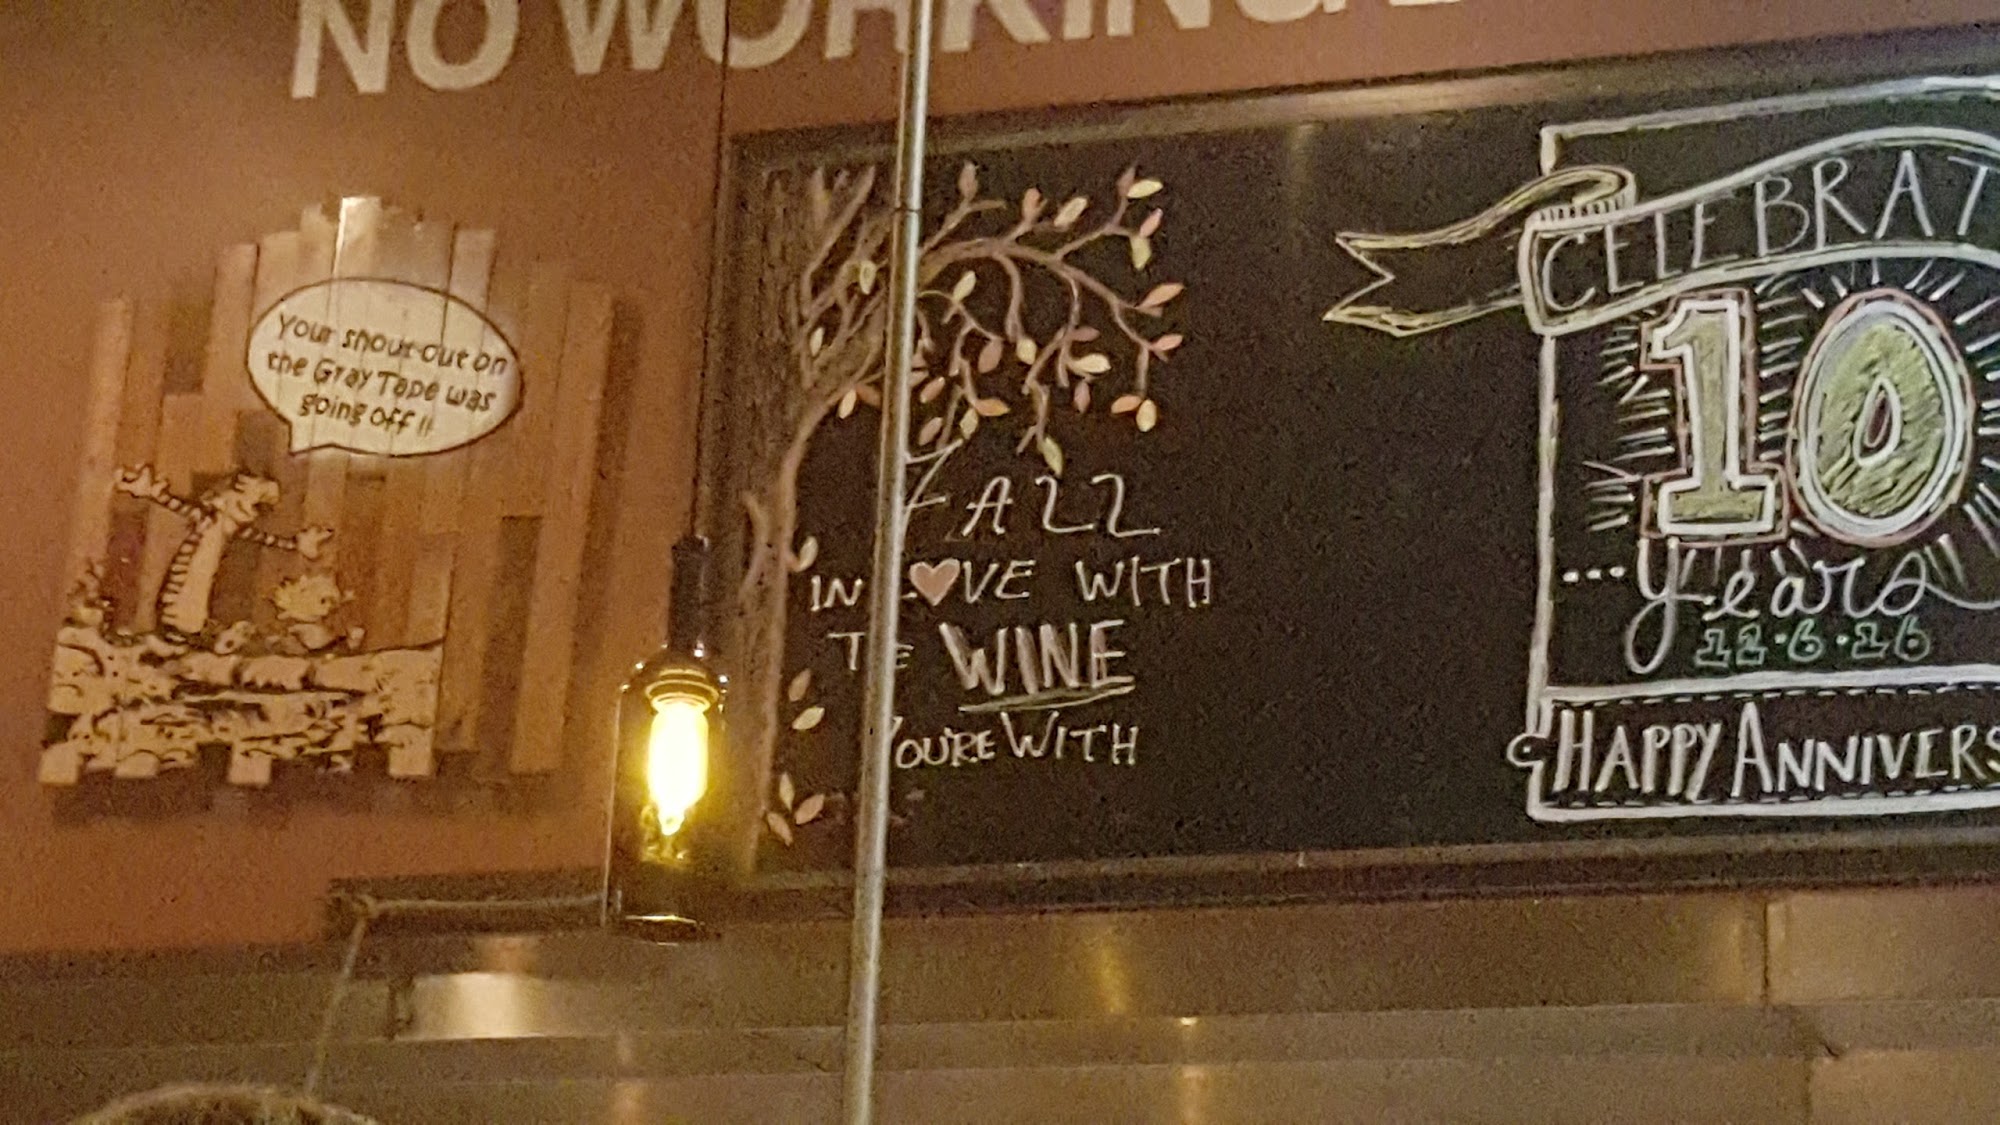 NO WORKING
Your shout out on
the Gray Tape was
going off!!
FALL
IN LOVE WITH
THE WINE
YOU'RE WITH
CELEBRAT
10
...years
11·6·16
HAPPY ANNIVERS